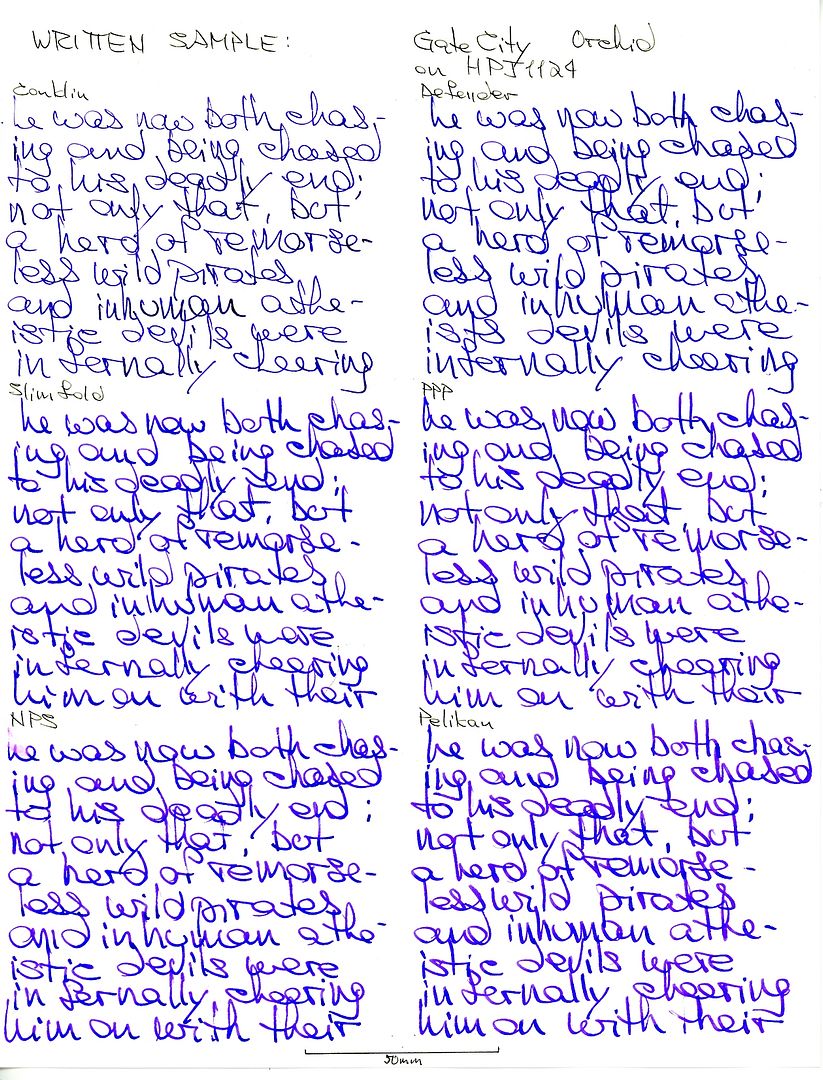 WRITTEN SAMPLE:
Gate City Orchid
on HPJ1124
Conklin
he was now both chas-
ing and being chased
to his deadly end;
not only that, but
a herd of remorse-
less wild pirates
and inhuman athe-
istic devils were
infernally cheering
Defender
he was now both chas-
ing and being chased
to his deadly end;
not only that, but
a herd of remorse-
less wild pirates
and inhuman athe-
ists devils were
infernally cheering
Slimfold
he was now both chas-
ing and being chased
to his deadly end;
not only that, but
a herd of remorse-
less wild pirates
and inhuman athe-
istic devils were
infernally cheering
him on with their
PPP
he was now both chas-
ing and being chased
to his deadly end;
not only that, but
a herd of remorse-
less wild pirates
and inhuman athe-
istic devils were
infernally cheering
him on with their
NPS
he was now both chas-
ing and being chased
to his deadly end;
not only that, but
a herd of remorse-
less wild pirates
and inhuman athe-
istic devils were
infernally cheering
him on with their
Pelikan
he was now both chas-
ing and being chased
to his deadly end;
not only that, but
a herd of remorse-
less wild pirates
and inhuman athe-
istic devils were
infernally cheering
him on with their
50mm